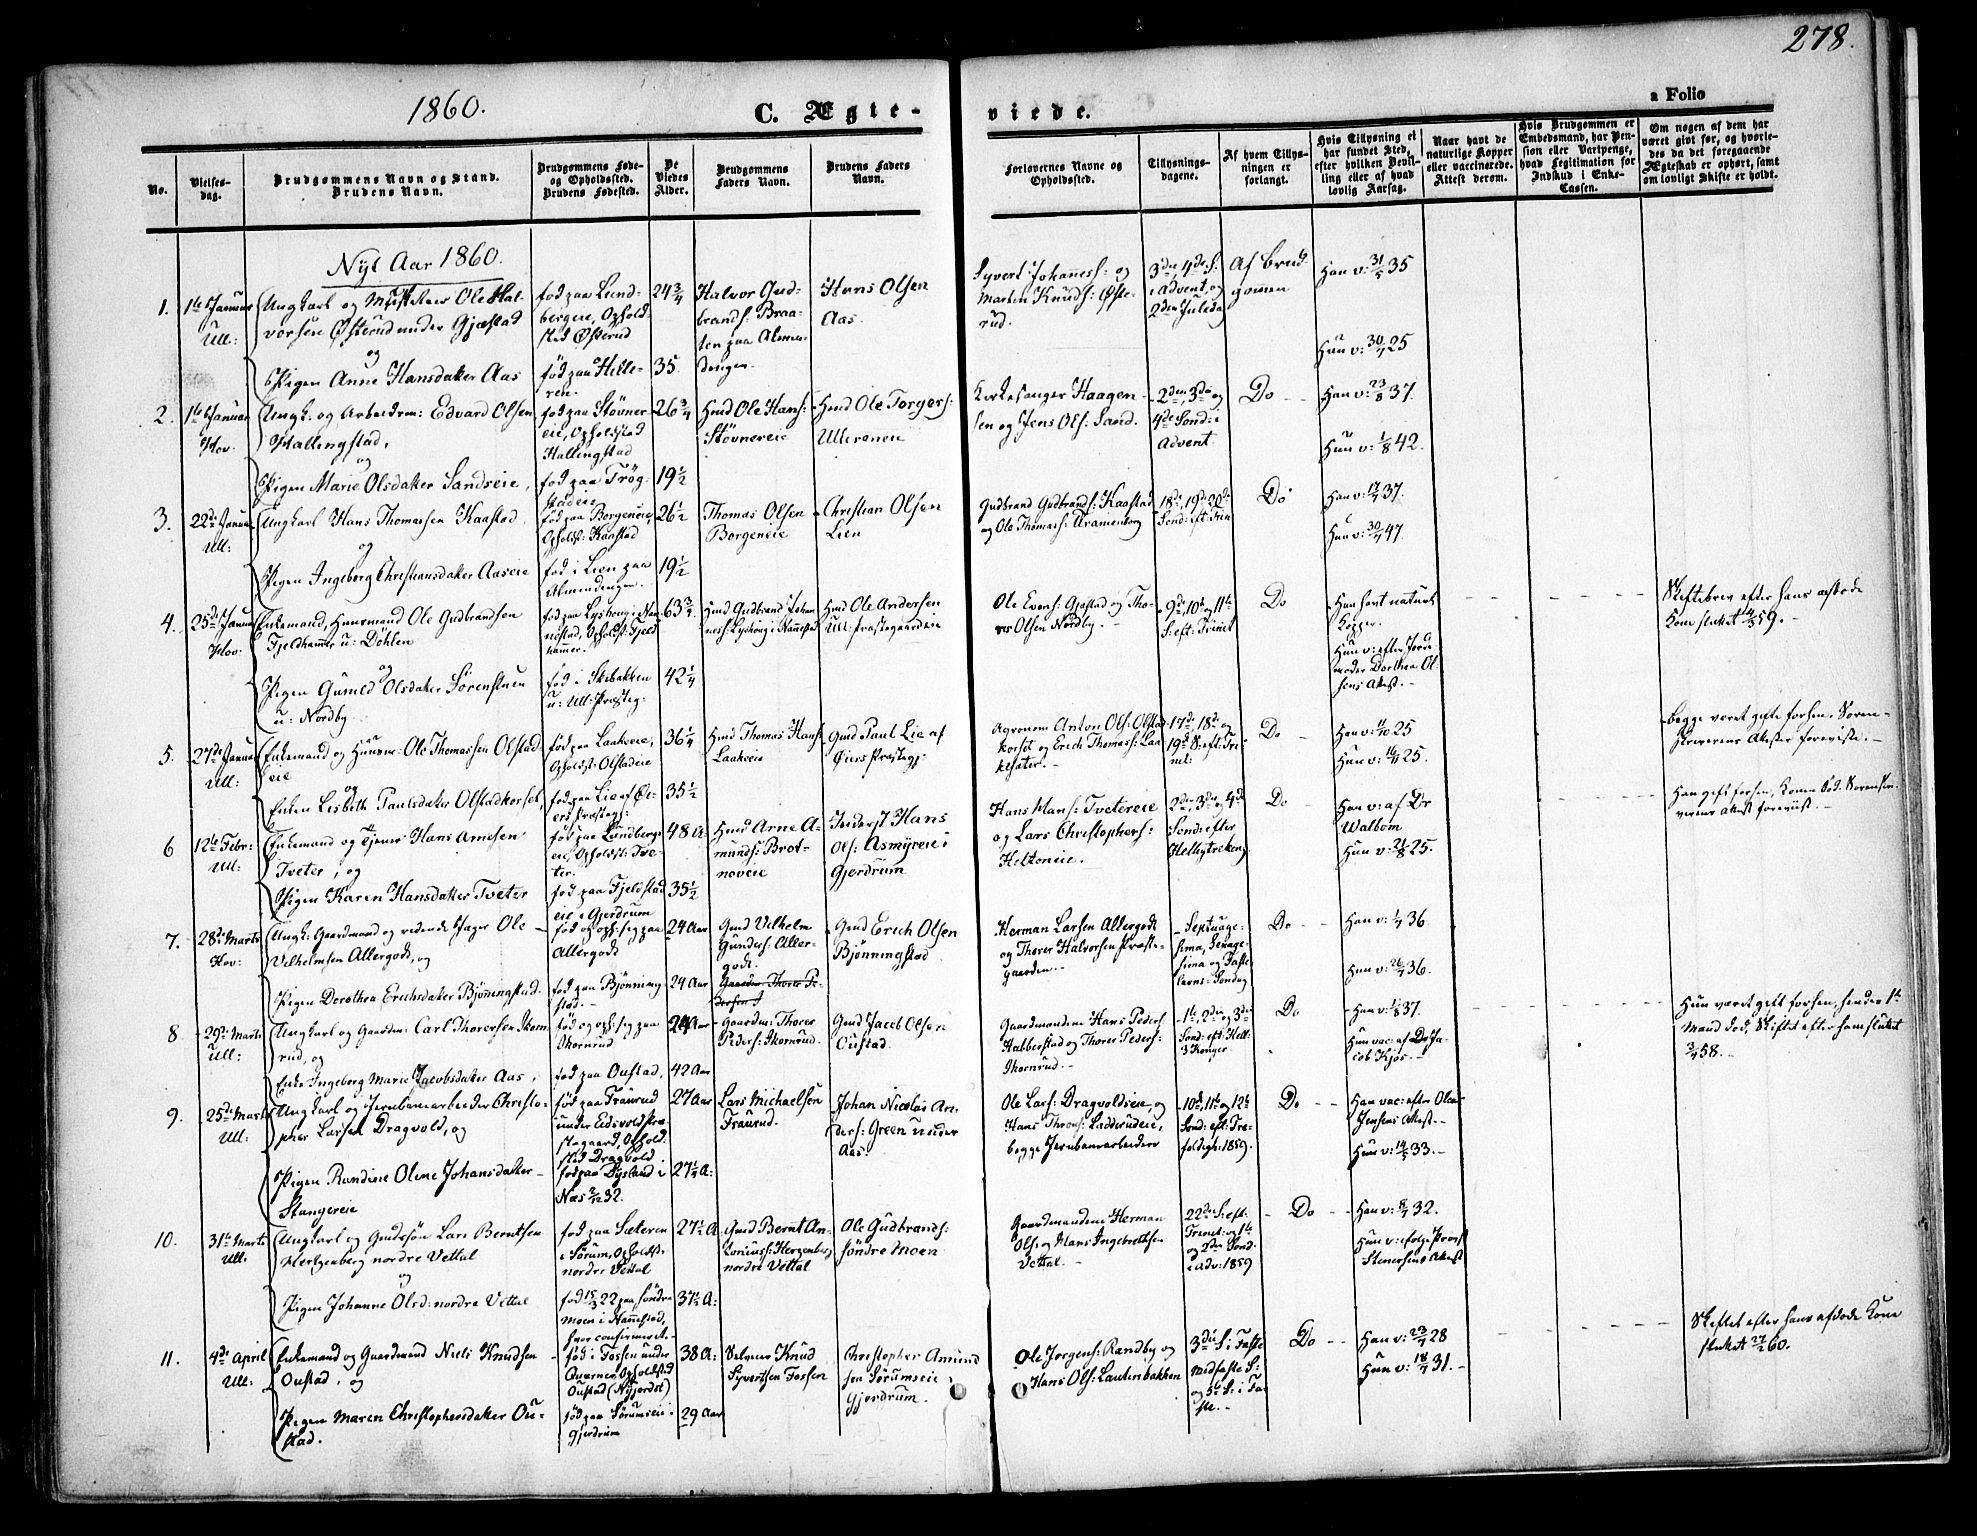 278.
a Folio
1860.
C. Ægte-
viede.
No.
Vielses-
dag.
Brudgommens Navn og Stand.
Brudens Navn.
Brudgommens Føde-
og Opholdssted.
Brudens Fødested.
De
Viedes
Alder.
Brudgommens
Faders Navn.
Brudens Faders
Navn.
Forlovernes Navne og
Opholdssted.
Tillysnings-
dagene.
Af hvem Tillys-
ningen er
forlangt.
Hvis Tillysning ei
har fundet Sted,
efter hvilken Bevil-
ling eller af hvad
lovlig Aarsag.
Naar havt de
naturlige Kopper
eller vaccinerede.
Attest derom.
Hvis Brudgommen er
Embedsmand, har Pen-
sion eller Vartpenge,
hvad Legitimation for
Indskud i Enke-
Cassen.
Om nogen af dem har
været gift før, og hvorle-
des da det foregaaende
Ægteskab er ophørt, samt
om lovligt Skifte er holdt.
Nyt Aar 1860.
1.
1te Januar
Ull:
Ungkarl og Ole Hal-
vorsen Østerud under Gjæstad
og
Pigen Anne Hansdatter Aas
fød paa Lund-
bergeie, Ophold-
sted Østerud
fød paa Helle-
ren.
24 3/4
35
Halvor Gud-
brands: Braa-
ten paa Almen-
dingen.
Hans Olsen
Aas.
Syvert Johannes: og
Martin Knuds: Øste-
rud.
3die, 4de S.
i Advent, og
2den Juledag
Af Brud-
gommen
Han v: 31/5 35
Hun v: 30/7 25
2.
1te Januar
Hov.
Ungk. og Arbeidsm: Edvard Olsen
Hallingstad,
og
Pigen Marie Olsdatter Sandseie,
fød paa Støvner-
eie, Opholdsted
Hallingstad
fød paa Trøg-
stadeie
26 3/4
19 1/2
Hmd Ole Hans:
Støvnereie
Hmd Ole Torgers:
Ullerenen
Kirkesanger Haagen-
sen og Jens Ols: Sand.
2den, 3die og
4de Sond: i
Advent
Do
Han v: 23/8 37.
Hun v: 1/8 42.
3.
22de Januar
Ull:
Ungkarl Hans Thomassen Kaastad
og
Pigen Ingeborg Christiansdatter Aaseie
fød paa Borgeneie,
Opholdst: Kaastad
fød i Lien paa
Almendingen.
26 1/2
19 1/2
Thomas Olsen
Borgeneie
Christian Olsen
Lien
Gudbrand Gudbrands: Kaastad
og Ole Thomas: Kramenborg
18de, 19de, 20de
Sond: eft: Trin
Do
Han v: 17/7 37.
Hun v: 30/7 47.
4.
25de Januar
Hov:
Enkemand, Huusmand Ole Gudbrandsen
Fjeldhammer u: Døhlen
og
Pigen Guneld Olsdatter Sørenstuen
u: Nordby
fød paa Lysberg i Nan-
nestad, Opholdst: Fjeld-
hammer.
fød i Skibakken
u: Ull: Præsteg:
63 3/4
42 1/4
Hmd Gudbrand Johan-
nes: Lysberg i Nannestad
Hmd Ole Andersen
Ull: Præstegaardeie
Ole Evens: Gjæstad og Tho-
rer Olsen Nordby.
9de, 10de og 11te
S: eft: Trinit
Do
Han havt naturl:
Kopper.
Hun v: efter Jorde-
moder Dorthea Ol-
sens Attest.
Skiftebrev efter hans afdøde
Kone sluttet 4/8 59.
5.
27de Januar
Ull:
Enkemand og Huusm: Ole Thomassen Olstad-
eie
og
Enken Lisbeth Paulsdatter Olstadkorset,
fød paa Laakeeie,
Opholdst: Olstadeie
fød paa Lie af Øi-
ers Præsteg:
36 1/4
35 1/2
Hmd Thomas Hans:
Laakeeie
Gmd Paul Lie af
Øiers Præstegj.
Agronom Anton Ols: Olstad-
korset og Erich Thomas: Laa-
kesæter.
17de, 18de og
19de S: eft: Tri-
nit:
Do
Han v: 11/10 25
Hun v: 16/11 25.
Begge været gifte forhen. Soren-
skriverens Attester foreviste.
6
12te Febr:
Ull:
Enkemand og Tjener Hans Arnesen
Tveter, og
Pigen Karen Hansdatter Tveter
fød paa Lundbergs-
eie, Opholdst: Tve-
ter.
fød paa Fjeldstad
eie i Gjerdrum
48 A
35 1/2
Hmd Arne A-
munds: Brot-
noveie
Inderst Hans
Ols: Asmyreie i
Gjerdrum
Hans Hans: Tvetereie
og Lars Christophers:
Heltoneie.
2den, 3die og 4de
Sond: efter
Hellig trekong
Do
Han v: af Dr
Walbom
Hun v: 21/8 25.
Han gift forhen, Konen død. Sorenskri-
verens Attest foreviist.
7.
28de Marts
Hov:
Ungk: Gaardmand og ridende Jæger Ole
Vilhelmsen Allergodt, og
Pigen Dorothea Erichsdatter Bjønningstad.
fød og oph: sig paa
Allergodt
fød paa Bjønning-
stad.
24 Aar
24 Aar
Gmd Vilhelm
Gunders: Aller-
godt.
Gaardm: Thorer Pe-
dersen S
Gmd Erich Olsen
Bjønningstad
Herman Larsen Allergodt
og Thorer Halvorsen Præste-
gaarden.
Septuage-
sima, Sexage-
sima og Faste-
lavns: Søndag
Do
Han v: 1/7 36
Hun v: 26/7 36.
8
29de Marts
Ull:
Ungkarl og Gaardm: Carl Thorersen Skorn-
rud, og
Enke Ingeborg Marie Jacobsdatter Aas,
fød og oph: sig paa
Skornrud
fød paa Oustad,
24 Aar
42 Aar
Gaardm: Thorer
Peders: Skornrud.
Gmd Jacob Olsen
Oustad.
Gaardmændene Hans Peders:
Halberstad og Thorer Peders:
Skornrud.
1te, 2den og 3die
Sond: eft: Hell:
3 Konger
Do
Han v: 1/8 37.
Hun vac: af D: Ja-
cob Kjos.
Hun været gift forhen, hendes 1te
Mand død, Skiftet efter ham sluttet
3/7 58.
9.
25de Marts
Ull:
Ungkarl og Jernbanearbeider Christo-
pher Larsen Dragvold, og
Pigen Randine Oline Johansdatter
Stangereie
fød paa Traurud
under Eidsvold Præ-
stegaard, Ophold-
sted Dragvold.
fød paa Dysland i
Næs 2/12 32.
27 Aar
27 1/4 A:
Lars Michaelsen
Traurud.
Johan Nicolai An-
ders: Green under
Aas.
Ole Lars: Dragvoldseie, og
Hans Throns: Ladderudeie,
begge Jernbanearbeidere
10de, 11te og 12te
Sond: eft: Tre-
foldigh: 1859.
Do
Han vac: efter Olea
Jensens Attest.
Hun v: 14/5 33.
10.
31te Marts
Ull.
Ungkarl og Gmdssøn Lars Berntsen
Hertzenberg nordre Vettal
og
Pigen Johanne Olsd: nordre Vettal
fød paa Sæteren
i Sørum, Opholdst:
nordre Vettal
fød 15/3 22 paa søndre
Moen i Nannestad,
hvor confirmeret.
27 1/2 A
37 1/2 A:
Gmd Bernt An-
toniuss: Hertzenberg
nordre Vettal
Ole Gudbrands:
søndre Moen
Gaardmændene Herman
Ols: og Hans Ingebretsen
Vettal.
22de S: eft:
Trinit: og 1te
og 2den Sond.
i Adv: 1859
Do
Han v: 8/7 32.
Hun v: ifølge Provst
Stenersens Attest
11.
4de April
Ull:
Enkemand og Gaardmand Niels Knudsen
Oustad, og
Pigen Maren Christophersdatter Ou-
stad.
fød i Fossen under
Quernes, Opholdsted
Oustad (Nyjordet)
fød paa Sørumseie i
Gjerdrum
38 A:
29 Aar
Selveier Knud
Syvertsen Fossen
Christopher Amund-
sen Sørumseie i
Gjerdrum.
Ole Jorgens: Randby og
Hans Ols: Lautenbakken
3die S: i Faste
Midfaste S:
og 5te S: i Fa-
ste.
Do
Han v: 23/7 28
Hun v: 18/7 31.
Skiftet efter hans afdøde Kone
sluttet 27/2 60.